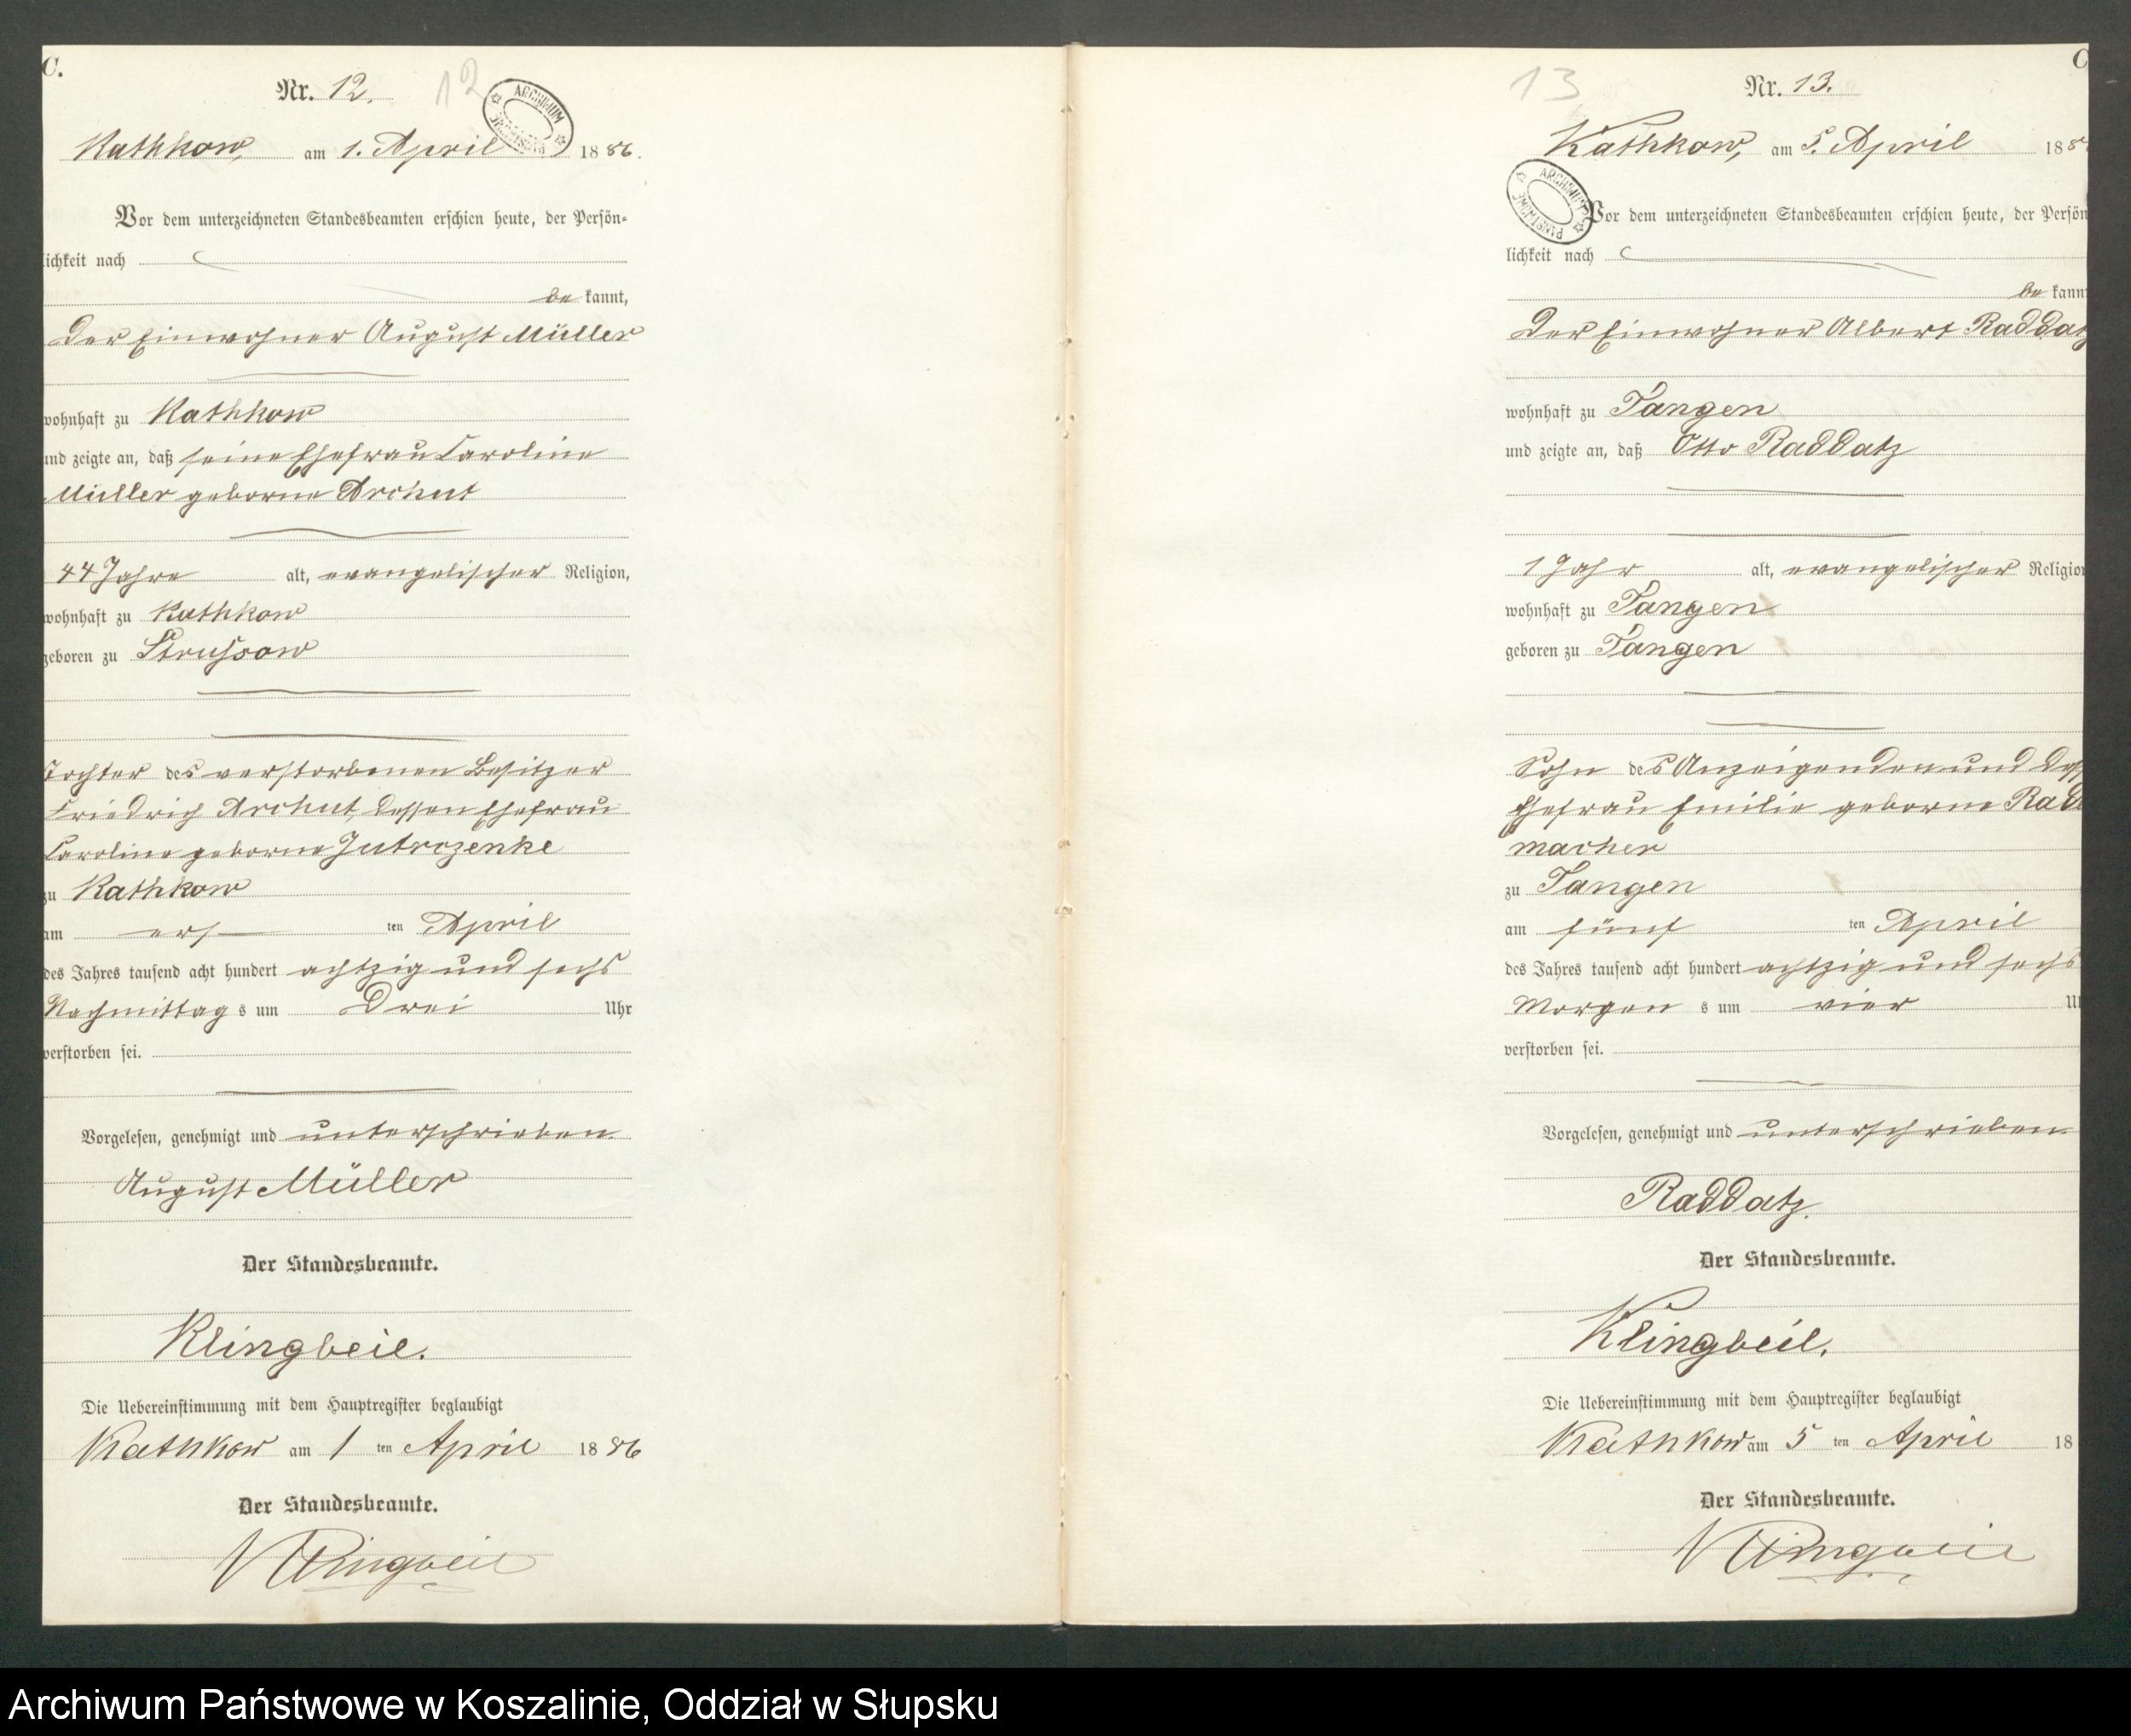 C.
Nr. 12.
12
ARCHIWUM PAŃSTWOWE
Kathkow, am 1. April 1886.
Vor dem unterzeichneten Standesbeamten erschien heute, der Persön-
lichkeit nach
be kannt,
der Einwohner August Müller
wohnhaft zu Kathkow
und zeigte an, daß seine Ehefrau Caroline
Müller geborne Archut
44 Jahre alt, evangelischer Religion,
wohnhaft zu Kathkow
geboren zu Strussow
Tochter des verstorbenen Besitzer
Friedrich Archut, dessen Ehefrau
Caroline geborne Jutrozenke
zu Kathkow
am ers ten April
des Jahres tausend acht hundert achtzig und sechs
Nachmittag s um drei Uhr
verstorben sei.
Vorgelesen, genehmigt und unterschrieben
August Müller
Der Standesbeamte.
Klingbeil.
Die Uebereinstimmung mit dem Hauptregister beglaubigt
Kathkow am 1 ten April 1886
Der Standesbeamte.
Klingbeil
C
Nr. 13.
13
ARCHIWUM PAŃSTWOWE
Kathkow, am 5. April 188
Vor dem unterzeichneten Standesbeamten erschien heute, der Persön
lichkeit nach
be kannt
der Einwohner Albert Raddatz
wohnhaft zu Tangen
und zeigte an, daß Otto Raddatz
1 Jahr alt, evangelischer Religion
wohnhaft zu Tangen
geboren zu Tangen
Sohn des Anzeigenden und dess
Ehefrau Emilie geborne Rad
macher
zu Tangen
am fünf ten April
des Jahres tausend acht hundert achtzig und sechs
Morgen s um vier U
verstorben sei.
Vorgelesen, genehmigt und unterschrieben
Raddatz.
Der Standesbeamte.
Klingbeil.
Die Uebereinstimmung mit dem Hauptregister beglaubigt
Kathkow am 5 ten April 18
Der Standesbeamte.
Klingbeil
Archiwum Państwowe w Koszalinie, Oddział w Słupsku